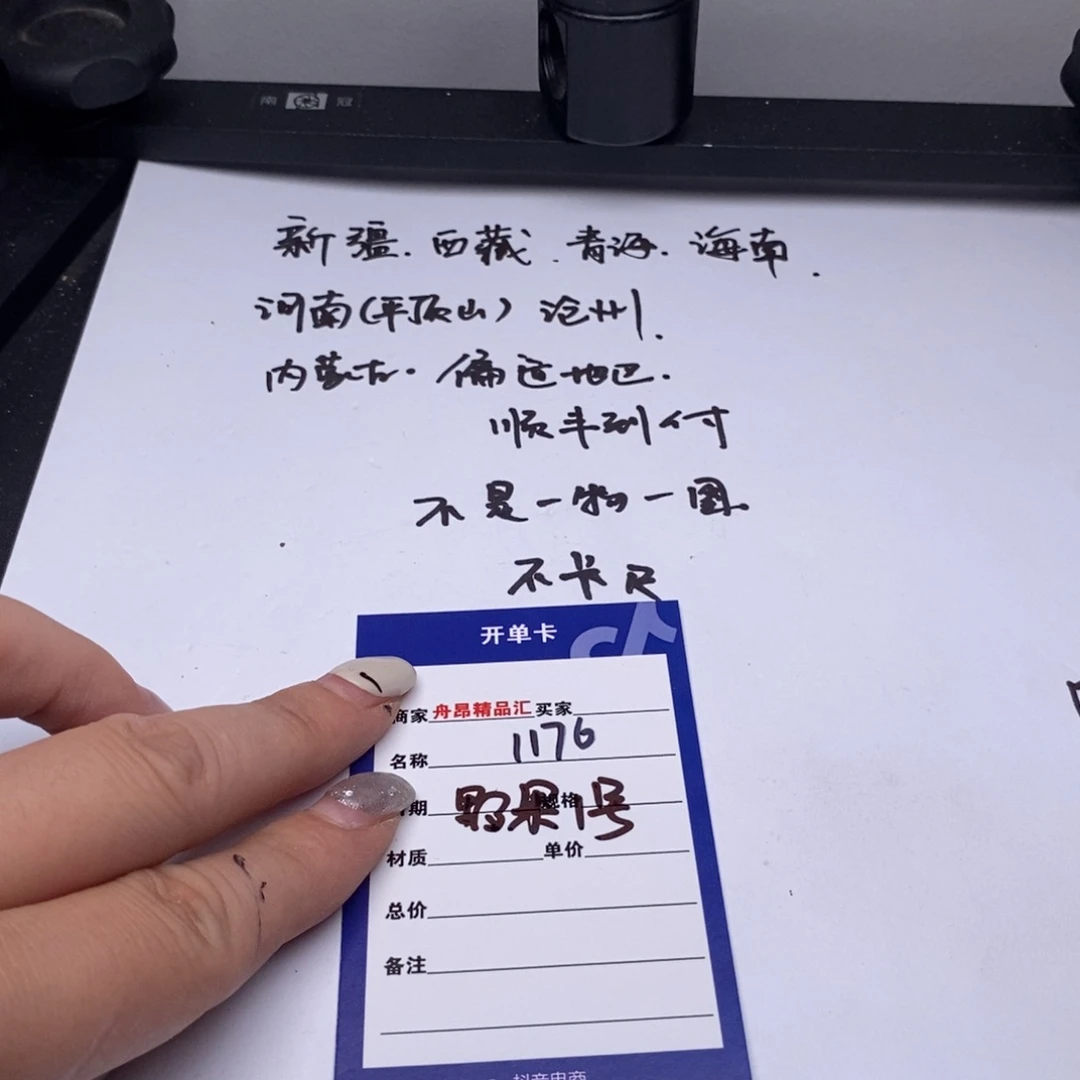 南 冠
新疆.西藏.青海.海南.
河南(平顶山)沧州.
内蒙古.偏远地区.
顺丰到付
不是一物一图.
不卡尺
开单卡
商家 舟昂精品汇 买家
名称 1176
期 规格
果1号
材质 单价
总价
备注
抖音电商